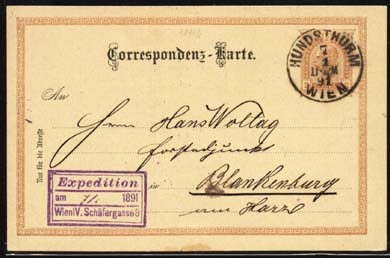 Correspondenz-Karte.
HUNDSTHURM
7
1
91
WIEN
An
Herrn Hans Woltag
Forstadjunkt
Blankenburg
am Harz
Nur für die Adresse
Expedition
am 7/1. 1891
Wien IV. Schäfergasse 3